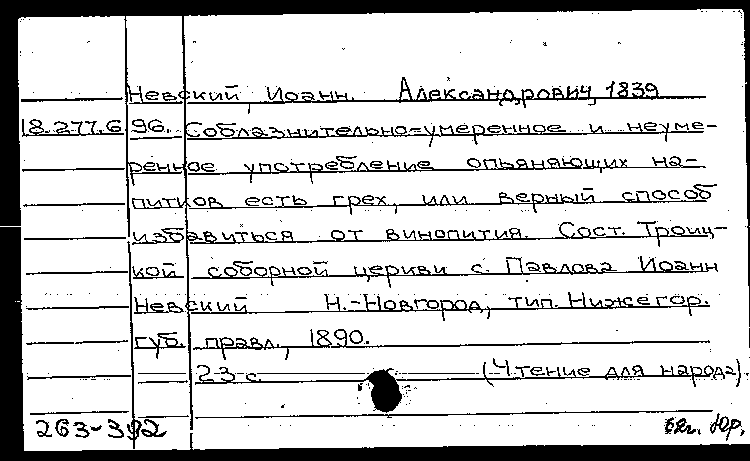 Невский, Иоанн Александрович, 1839
18.277.6.96. Соблазнительно=умеренное и неуме-
ренное употребление опьяняющих на-
питков есть грех, или верный способ
избавиться от винопития. Сост. Троиц-
кой соборной церкви с. Павлова Иоанн
Невский Н.-Новгород, тип. Нижегор.
губ. правл., 1890.
23 с. (Чтение для народа).
263-392 68г. Юр.